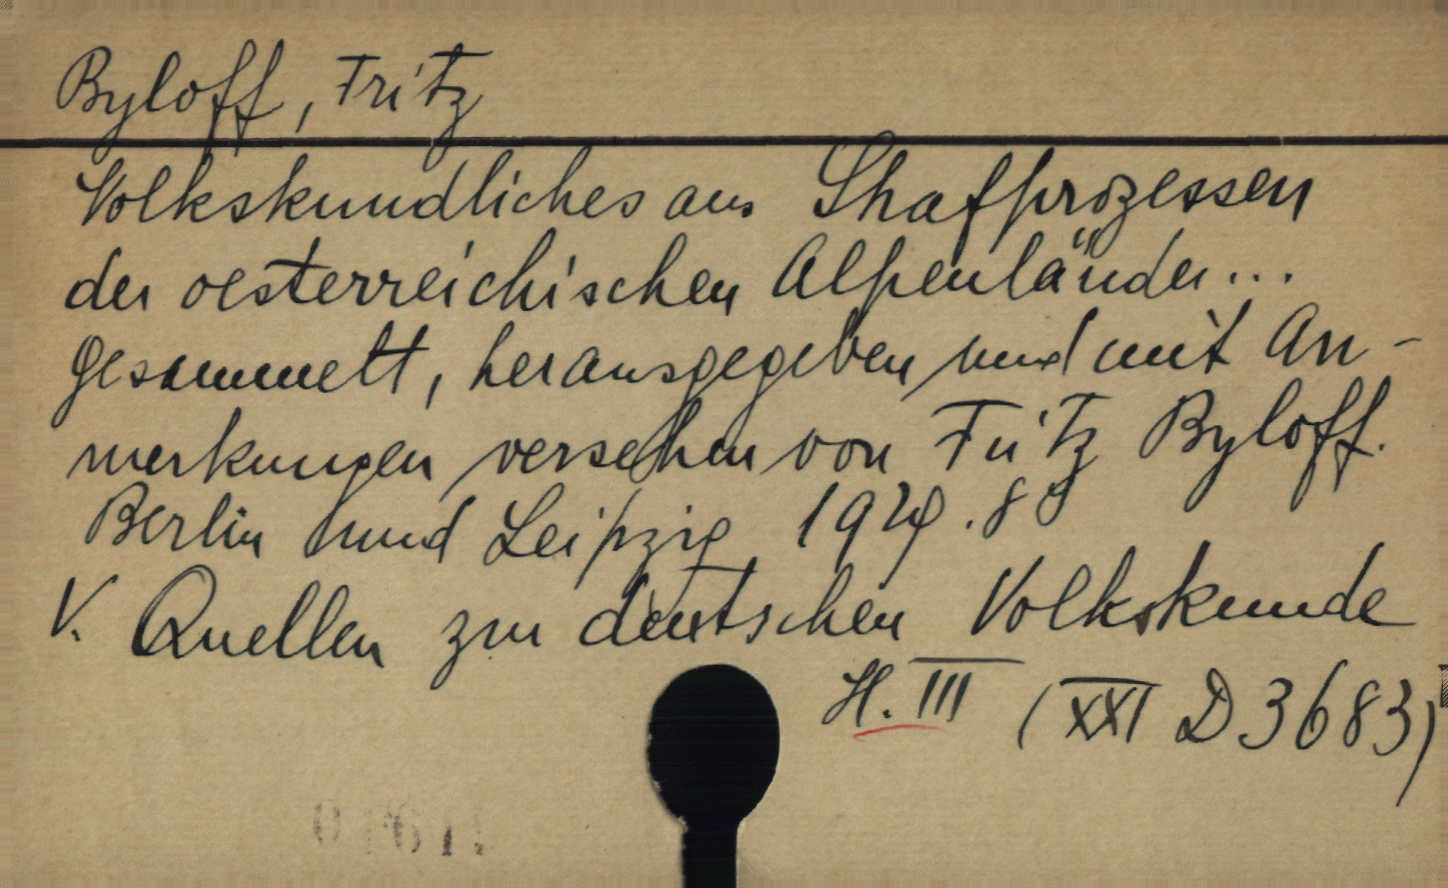 Byloff, Fritz
Volkskundliches aus Strafprozessen
der oesterreichischen Alpenländer...
gesammelt, herausgegeben und mit An-
merkungen versehen von Fritz Byloff.
Berlin und Leipzig 1929. 8°
V. Quellen zur deutschen Volkskunde
H. III (XXI D 3683)